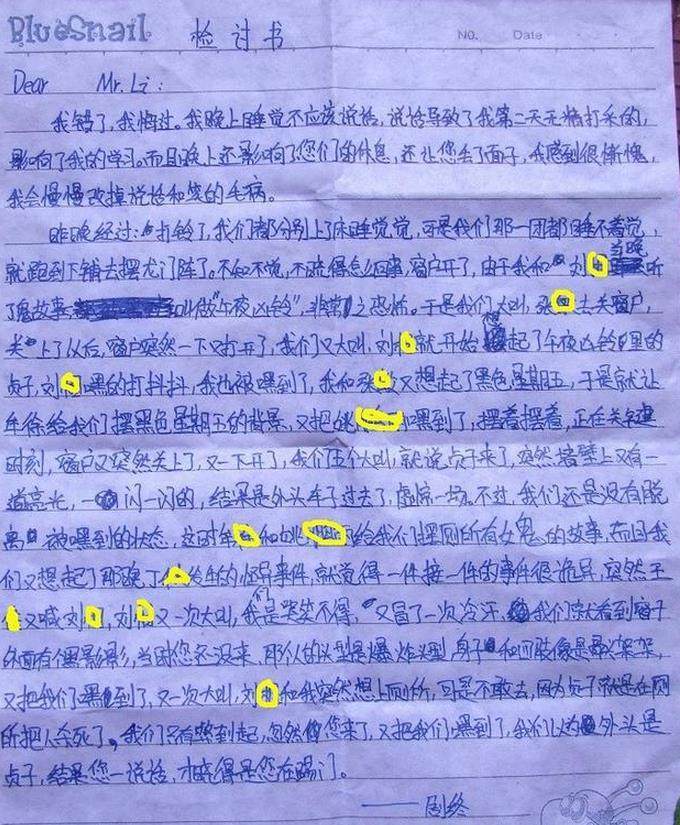 BlueSnail 检讨书 No. Date
Dear Mr. Li:
我错了,我悔过。我晚上睡觉不应该说话,说话导致了我第二天无精打采的,
影响了我的学习。而且晚上还影响了您们的休息,还让您丢了面子,我感到很惭愧,
我会慢慢改掉说话和笑的毛病。
昨晚经过:打铃了,我们都分别上了床睡觉觉,可是我们那一团都睡不着觉,
就跑到下铺去摆龙门阵了。不知不觉,不晓得怎么回事,窗户开了,由于我和刘 当晚听
了鬼故事, 叫做“午夜凶铃”非常之恐怖。于是我们大叫,张 去关窗户,
关上了以后,窗户突然一下又打开了,我们又大叫,刘 就开始 起了午夜凶铃里的
贞子,刘 嘿的打抖抖,我也被嘿到了,我和张 又想起了黑色星期五,于是就让
牟徐给我们摆黑色星期五的背景,又把姚 嘿到了,摆着摆着,正在关键
时刻,窗户又突然关上了,又一下开了,我们五个大叫,就说贞子来了,突然墙壁上又有一
道亮光,一闪一闪的,结果是外头车子过去了,虚惊一场。不过,我们还是没有脱
离被嘿到的状态,这时牟 和姚 给我们摆厕所有女鬼的故事,而且我
们又想起了那晚丁 发生的怪异事件,就觉得一件接一件的事件很诡异,突然王
又喊刘 ,刘 又一次大叫,我们是哭笑不得,又冒了一次冷汗,我们原来看到窗子
外面有个黑影影,当时您还没来,那个的头型是爆炸头型,身子和四肢像是骷髅架架,
又把我们嘿到了,又一次大叫,刘 和我突然想上厕所,可是不敢去,因为贞子就是在厕
所把人杀死了。我们只有憋到起,忽然您来了,又把我们嘿到了,我们以为外头是
贞子,结果您一说话,才晓得是您在踢门。
——剧终